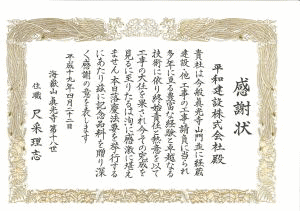 感謝状
平和建設株式会社殿
貴社は今般眞光寺山門並に経蔵
建設、他工事の工事請負に当られ
多年に亘る豊富な経験と卓越なる
技術に依り終始責任と熱意を以て
工事の大任を果され今その完成を
見るに至りたるは洵に感激に堪え
ません本日落慶法要を挙行する
にあたり茲に記念品料を贈り深
く感謝の意を表します
平成十九年四月二十二日
海嶽山眞光寺第十八世
住職 尺采理志